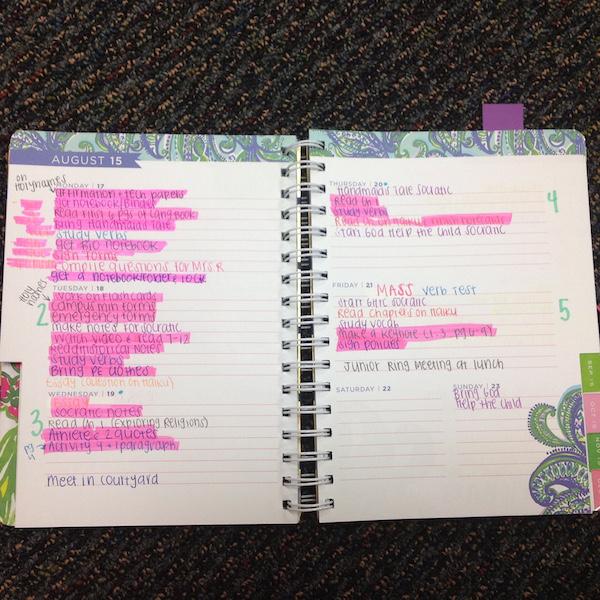 AUGUST 15
on
Holynames
MONDAY | 17
affirmation + tech papers
got notebook/Binder
Read First 6 pgs of Lang Book
Bring Handmaids Tale
study verbs
get Bio notebook
sign forms
compile questions for Mrs. R
get a notebook/folder & lock
Holy
names
TUESDAY | 18
2
Work on Flashcards
campus min forms
emergency forms
make notes for socratic
Watch video & read 7-12
Read historical notes
study verbs
Bring PE clothes
Essay (question on haiku)
WEDNESDAY | 19
3
socratic notes
Read Ch. 1 (Exploring Religions)
Athlete & 2 quotes
Activity 4 + 1 paragraph
meet in courtyard
THURSDAY | 20
4
Handmaids Tale socratic
Read Ch 1
study verbs
Read on haiku
Start God Help the Child socratic
FRIDAY | 21 MASS verb TEST
5
Start GHTC socratic
Read chapters on haiku
study vocab
make a keynote (1.3 pg 6-9)
sign policies
Junior Ring Meeting at lunch
SATURDAY | 22
SUNDAY | 23
Bring God
Help the Child
SEP 15
OCT 15
NOV